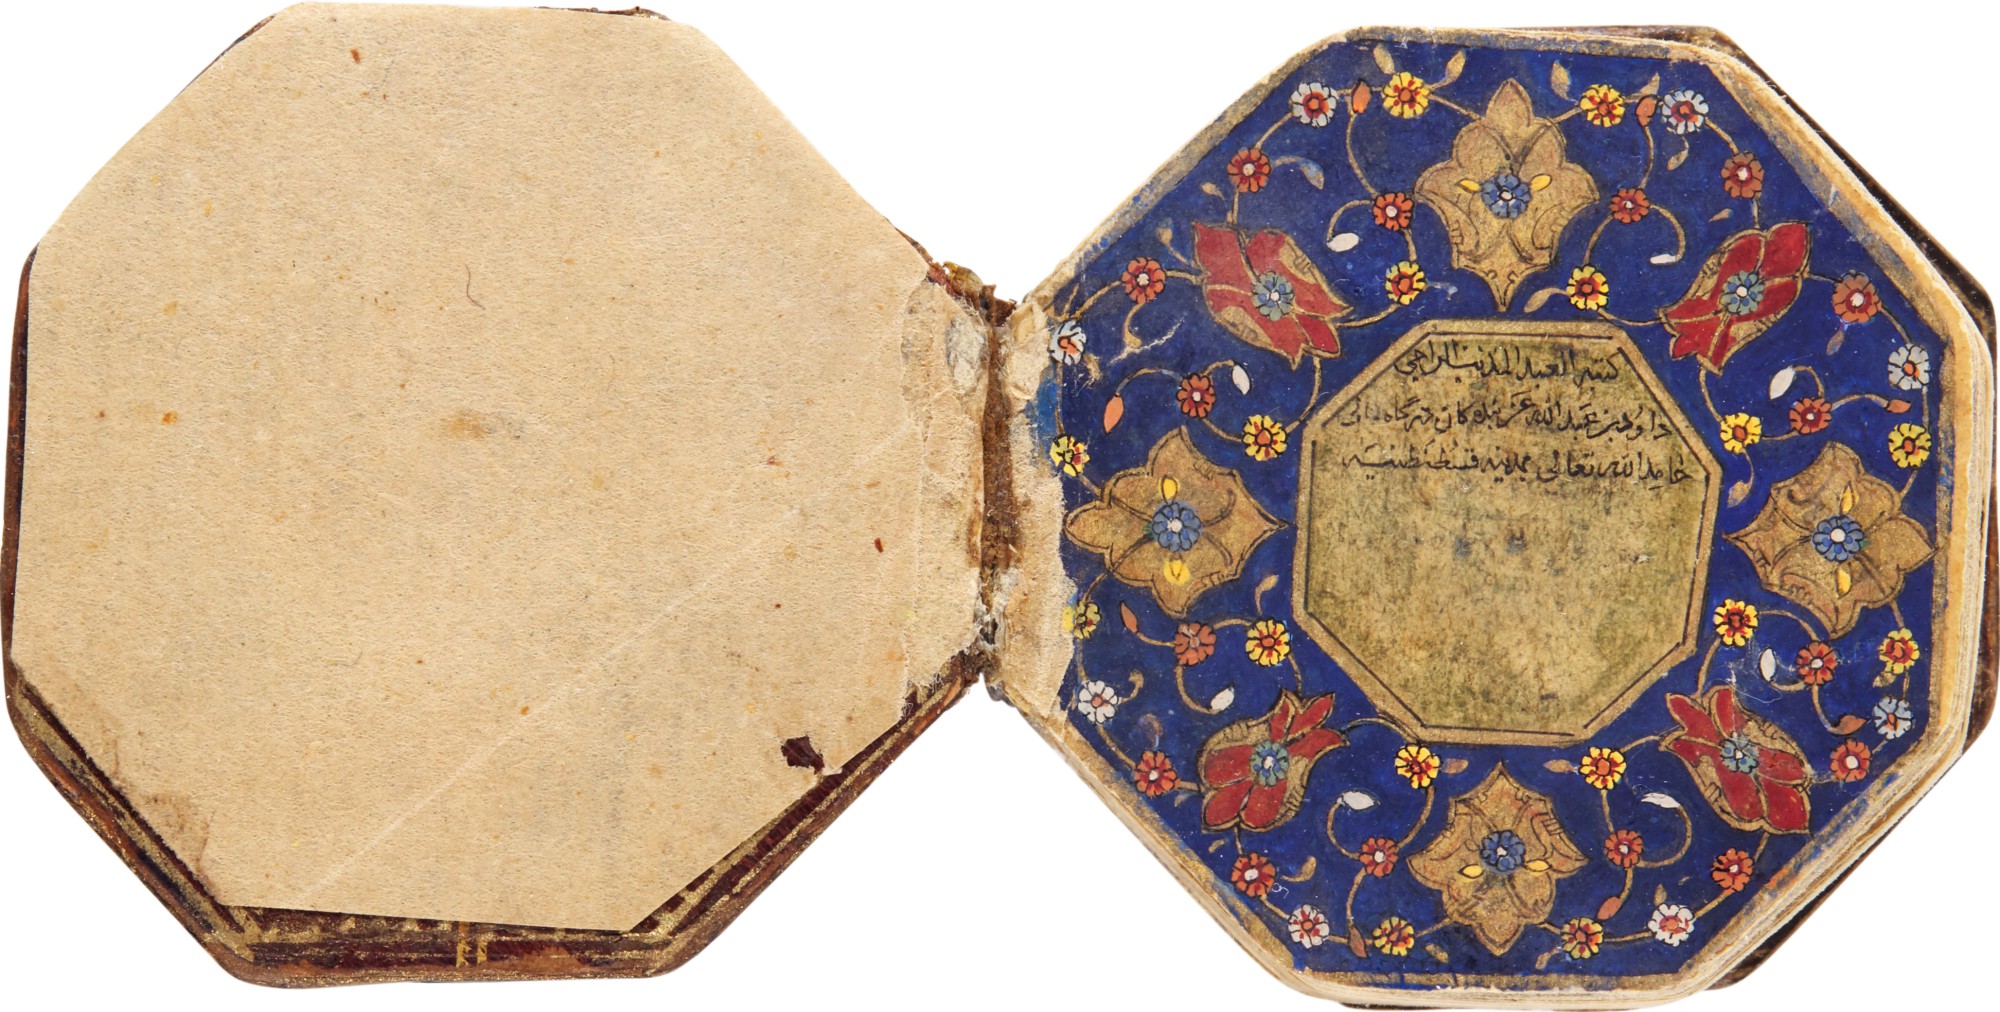 كتبه العبد المذنب الراجي
داود بن عبد الله عن بندكان دركاه عالي
حامد الله تعالى بمدينه قسطنطينيه